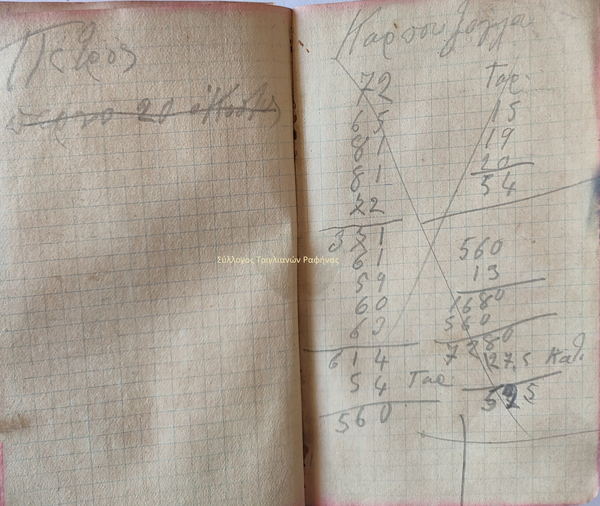 Πέτρος
20
Καρπουζαγια
72
65
81
81
22
351
61
59
60
63
614
54 Ταρ
560
Ταρ.
15
19
20
54
560
13
1680
560
7280
127,5 Καθ.
595
Σύλλογος Τριγλιανών Ραφήνας